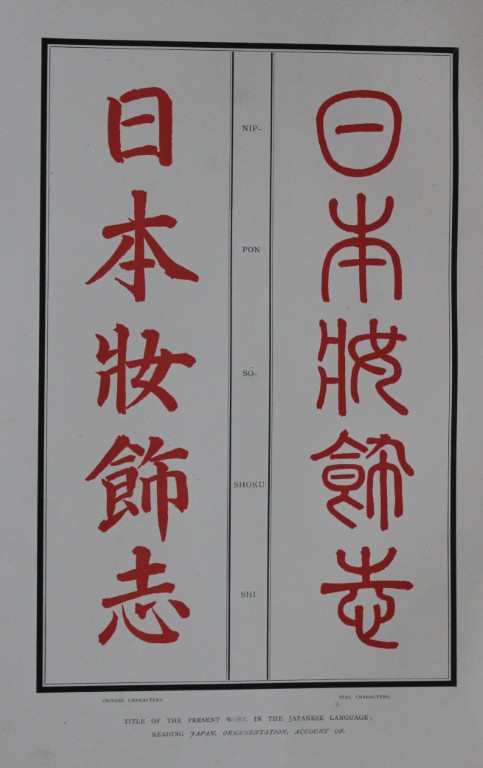 日本妝飾志
NIP-
PON
SŌ-
SHOKU
SHI
日本妝飾志
CHINESE CHARACTERS.
SEAL CHARACTERS.
TITLE OF THE PRESENT WORK IN THE JAPANESE LANGUAGE;
READING JAPAN, ORNAMENTATION, ACCOUNT OF.